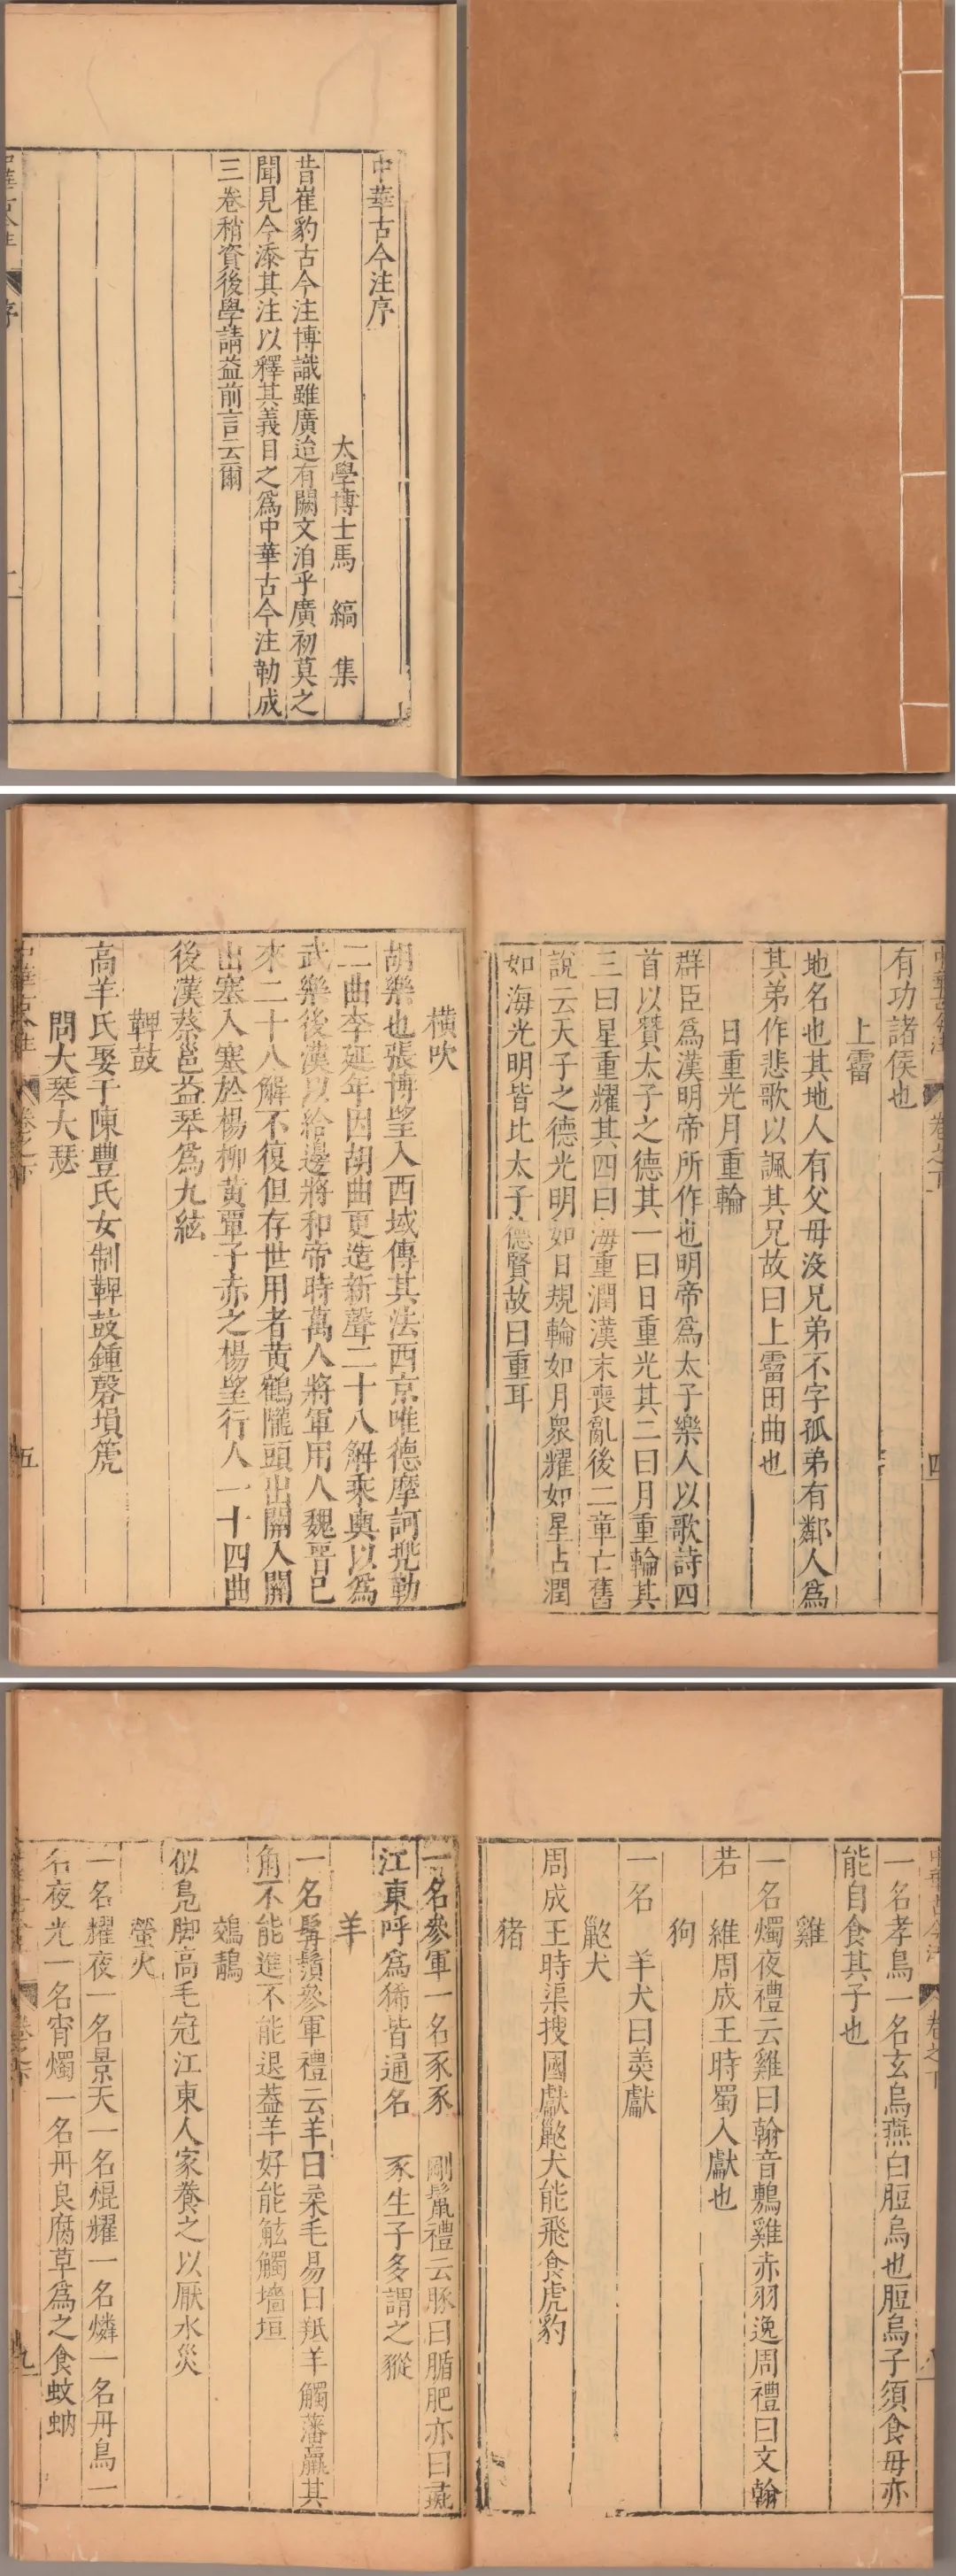 中華古今注序
太學博士馬　縞　集
昔崔豹古今注博識雖廣迨有闕文洎乎廣初莫之
聞見今添其注以釋其義目之爲中華古今注勒成
三卷稍資後學請益前言云爾
中華古今注
序
中華古今注
卷之下
四
有功諸侯也
上霤
地名也其地人有父母沒兄弟不字孤弟有鄰人爲
其弟作悲歌以諷其兄故曰上霤田曲也
日重光月重輪
群臣爲漢明帝所作也明帝爲太子樂人以歌詩四
首以贊太子之德其一曰日重光其二曰月重輪其
三曰星重耀其四曰海重潤漢末喪亂後二章亡舊
說云天子之德光明如日規輪如月衆耀如星占潤
如海光明皆比太子德賢故曰重耳
橫吹
胡樂也張博望入西域傳其法西京唯德摩訶兜勒
二曲李延年因胡曲更造新聲二十八解乘輿以爲
武樂後漢以給邊將和帝時萬人將軍用人魏晉已
來二十八解不復但存世用者黃鶴隴頭出關入關
出塞入塞於楊柳黃覃子赤之楊望行人一十四曲
後漢蔡邕益琴爲九絃
鞞鼓
高羊氏娶于陳豐氏女制鞞鼓鍾磬塤箎
問大琴大瑟
中華古今注
卷之下
五
中華古今注
卷之下
八
一名孝鳥一名玄烏燕白脰烏也脰烏子須食母亦
能自食其子也
雞
一名燭夜禮云雞曰翰音鷷雞赤羽逸周禮曰文翰
若　維周成王時蜀入獻也
狗
一名　羊犬曰羹獻
䶂犬
周成王時渠搜國獻䶂犬能飛食虎豹
猪
一名參軍一名豕豕　剛鬣禮云豚曰腯肥亦曰彘
江東呼爲豨皆通名　豕生子多謂之豵
羊
一名髯鬚參軍禮云羊曰柔毛易曰羝羊觸藩羸其
角不能進不能退蓋羊好能觝觸墻垣
鵁鶄
似鳧脚高毛冠江東人家養之以厭水災
螢火
一名耀夜一名景天一名熠耀一名燐一名丹鳥一
名夜光一名宵燭一名丹良腐草爲之食蚊蚋
卷之下
九